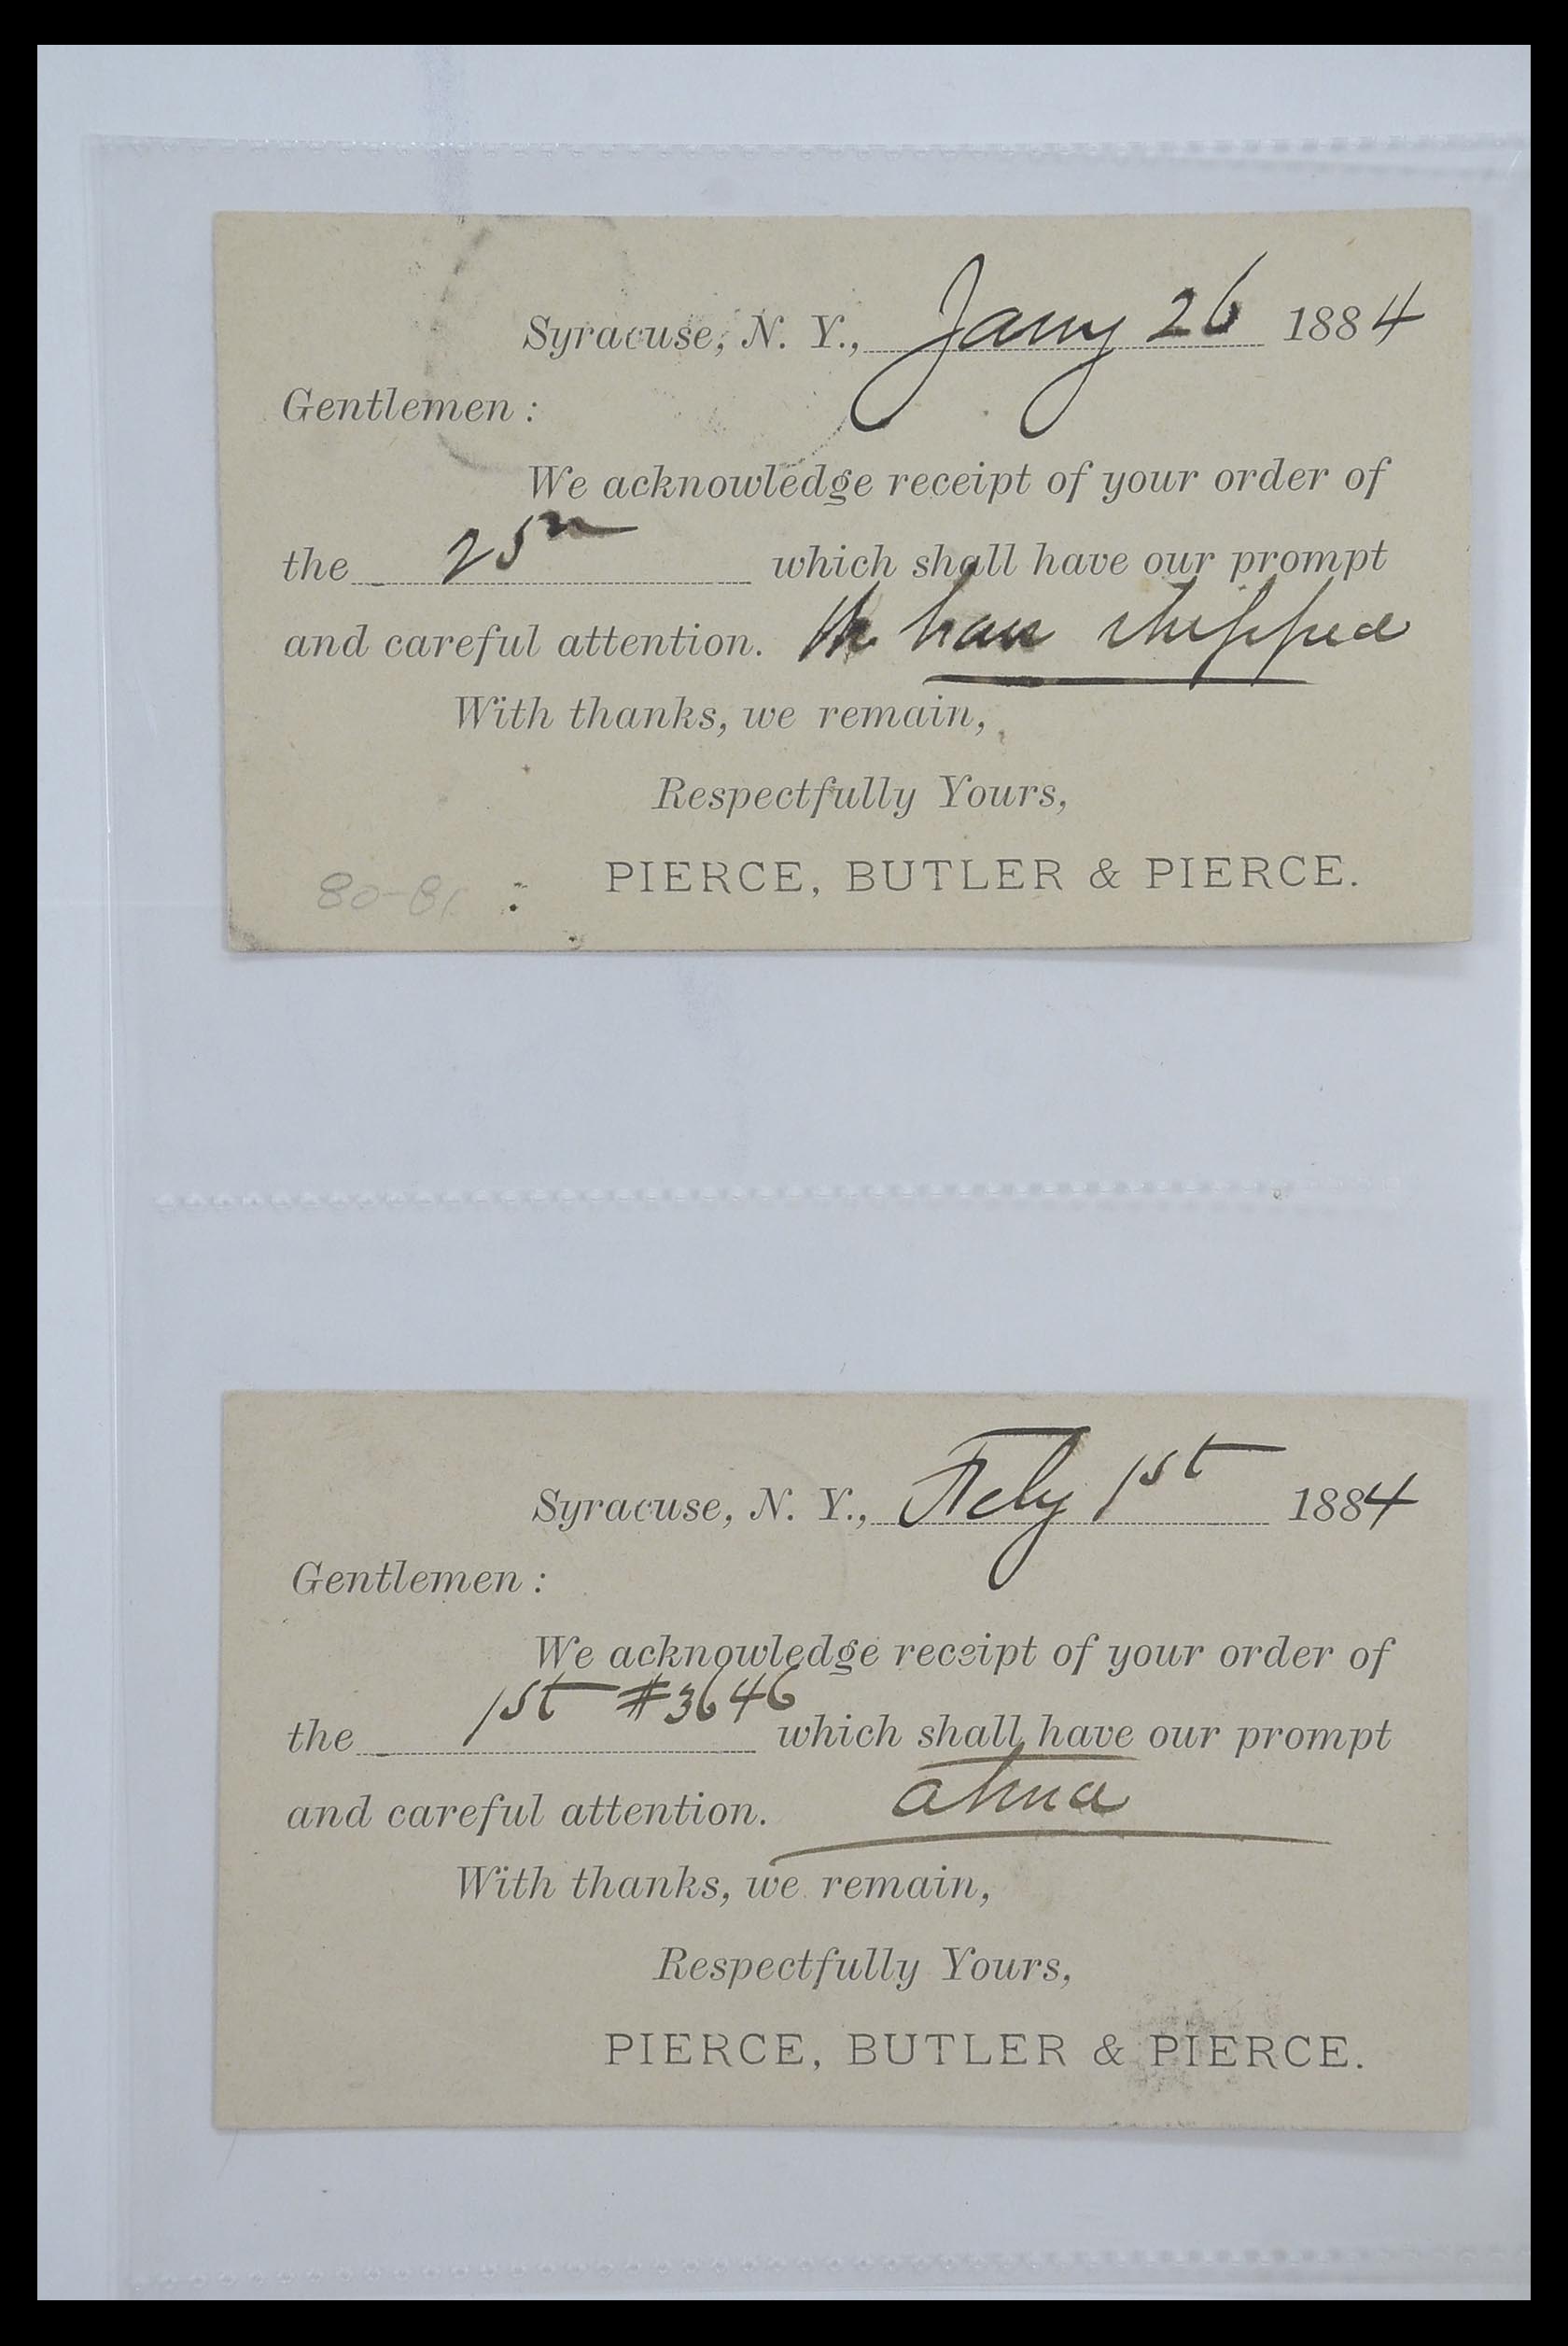 Syracuse, N. Y., Jany 26 1884
Gentlemen :
We acknowledge receipt of your order of
the 25th which shall have our prompt
and careful attention. We have shipped
With thanks, we remain,
Respectfully Yours,
PIERCE, BUTLER & PIERCE.
80-81
Syracuse, N. Y., Feby 1st 1884
Gentlemen :
We acknowledge receipt of your order of
the 1st #3646 which shall have our prompt
and careful attention.
With thanks, we remain,
Respectfully Yours,
PIERCE, BUTLER & PIERCE.